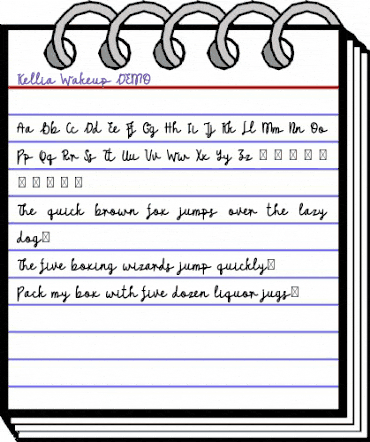 Kellia Wakeup DEMO
Aa Bb Cc Dd Ee Ff Gg Hh Ii Jj Kk Ll Mm Nn Oo
Pp Qq Rr Ss Tt Uu Vv Ww Xx Yy Zz □ □ □ □ □
□ □ □ □ □
The quick brown fox jumps over the lazy
dog□
The five boxing wizards jump quickly□
Pack my box with five dozen liquor jugs□